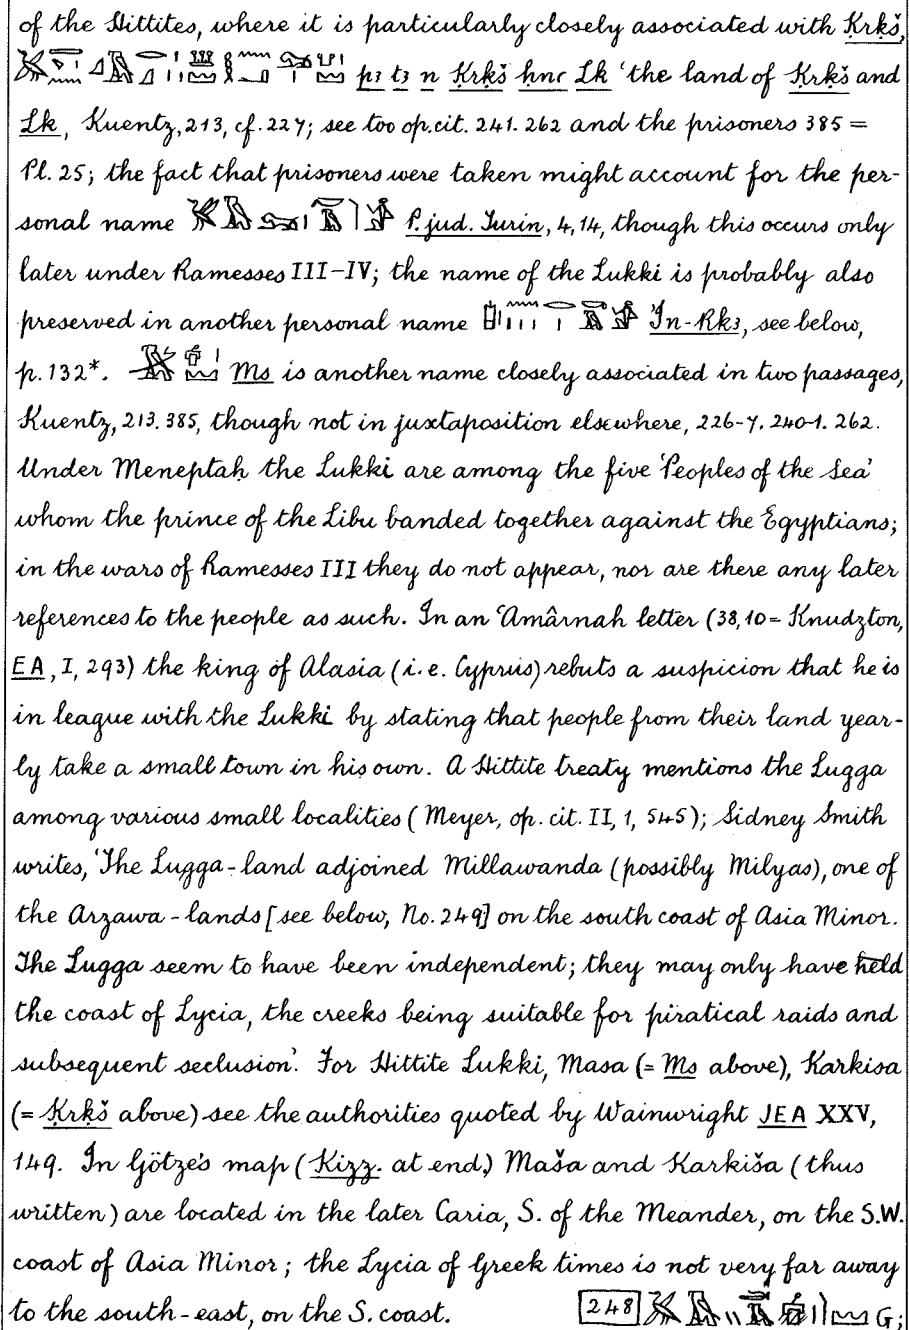 of the Hittites, where it is particularly closely associated with Ḳrḳš,
pꜣ tꜣ n Ḳrḳš ḥnꜥ Lk ‘the land of Ḳrḳš and
Lk, Kuentz, 213, cf. 227; see too op. cit. 241. 262 and the prisoners 385 =
Pl. 25; the fact that prisoners were taken might account for the per-
sonal name P. jud. Turin, 4, 14, though this occurs only
later under Ramesses III–IV; the name of the Lukki is probably also
preserved in another personal name ’In-Rkꜣ, see below,
p. 132*. Ms is another name closely associated in two passages,
Kuentz, 213. 385, though not in juxtaposition elsewhere, 226-7. 240-1. 262.
Under Meneptaḥ the Lukki are among the five ‘Peoples of the Sea’
whom the prince of the Libu banded together against the Egyptians;
in the wars of Ramesses III they do not appear, nor are there any later
references to the people as such. In an ‘Amârnah letter (38, 10 = Knudzton,
EA, I, 293) the king of Alasia (i.e. Cyprus) rebuts a suspicion that he is
in league with the Lukki by stating that people from their land year-
ly take a small town in his own. A Hittite treaty mentions the Lugga
among various small localities (Meyer, op. cit. II, 1, 545); Sidney Smith
writes, ‘The Lugga-land adjoined Millawanda (possibly Milyas), one of
the Arzawa-lands [see below, No. 249] on the south coast of Asia Minor.
The Lugga seem to have been independent; they may only have held
the coast of Lycia, the creeks being suitable for piratical raids and
subsequent seclusion’. For Hittite Lukki, Masa (= Ms above), Karkisa
(= Ḳrḳš above) see the authorities quoted by Wainwright JEA XXV,
149. In Götze's map (Kizz. at end) Maša and Karkiša (thus
written) are located in the later Caria, S. of the Meander, on the S.W.
coast of Asia Minor; the Lycia of Greek times is not very far away
to the south-east, on the S. coast. 248 G;